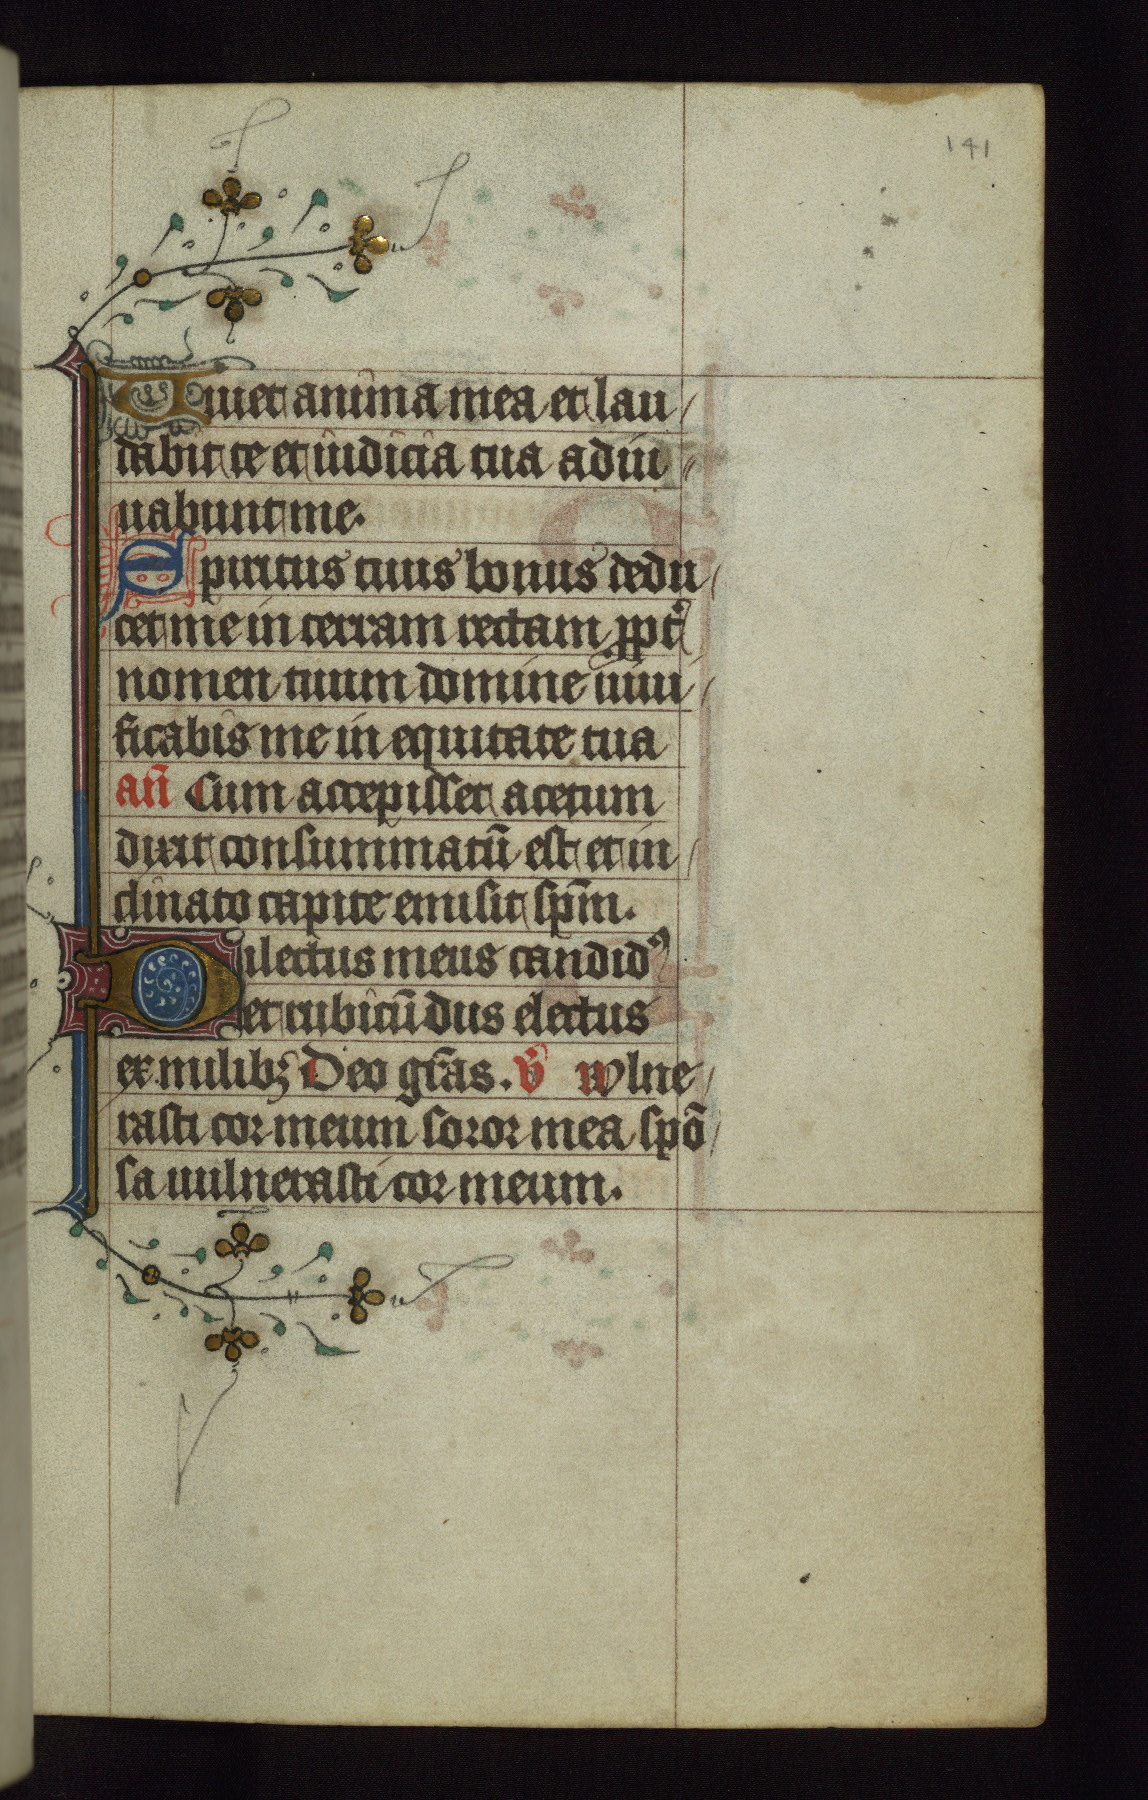 141
Uiuet anima mea et lau
dabit te et iudicia tua adiu
uabunt me.
Spiritus tuus bonus dedu
cet me in terram rectam ꝓpt᷒
nomen tuum domine uiui
ficabis me in equitate tua
an̄ Cum accepisset acetum
dixit consummatū est et in
clinato capite emisit sp̄m.
Dilectus meus candidꝰ
et rubicūdus electus
ex milibꝫ Deo gr̄as. v̄ Wlne
rasti cor meum soror mea spō
sa uulnerasti cor meum.